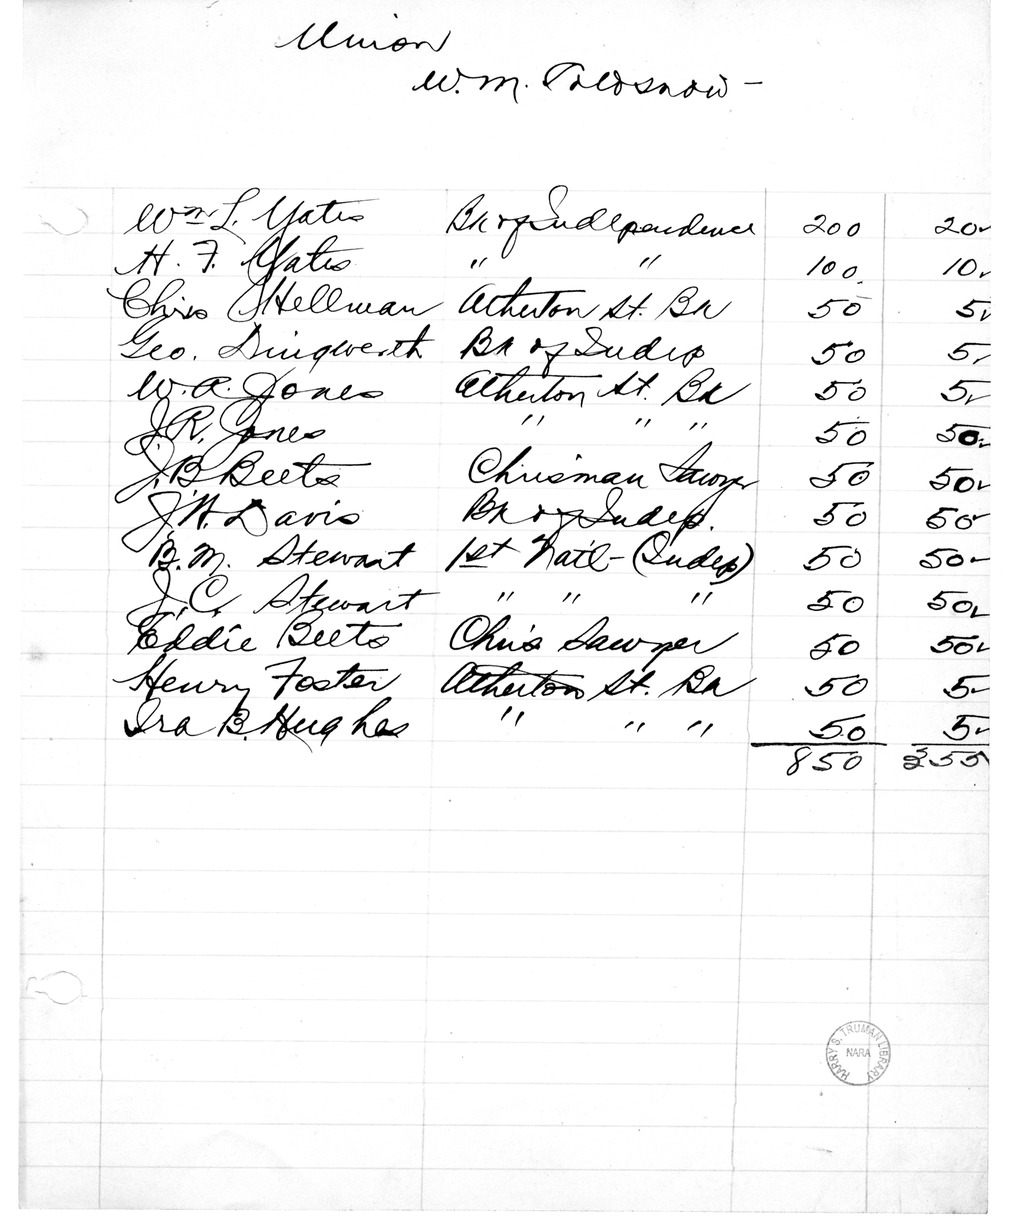 Union
W. M.
Wm L. Yates Bk of Independence 200 20
H. F. Yates " " 100. 10.
Chris Hellman Atherton St. Bk 50 5
Geo. Dingwerth Bk of Indep 50 5
W. A. Jones Atherton St. Bk 50 5
J. R. Jones " " " 50 50
J. B Beets Chrisman Sawyer 50 50
J. H. Davis Bk of Indep. 50 50
B. M. Stewart 1st Nat'l - (Indep) 50 50
J. C. Stewart " " " 50 50
Eddie Beets Chris Sawyer 50 50
Henry Foster Atherton St. Bk 50 5
Ira B. Hughes " " " 50 5
850 355
HARRY S. TRUMAN LIBRARY
NARA